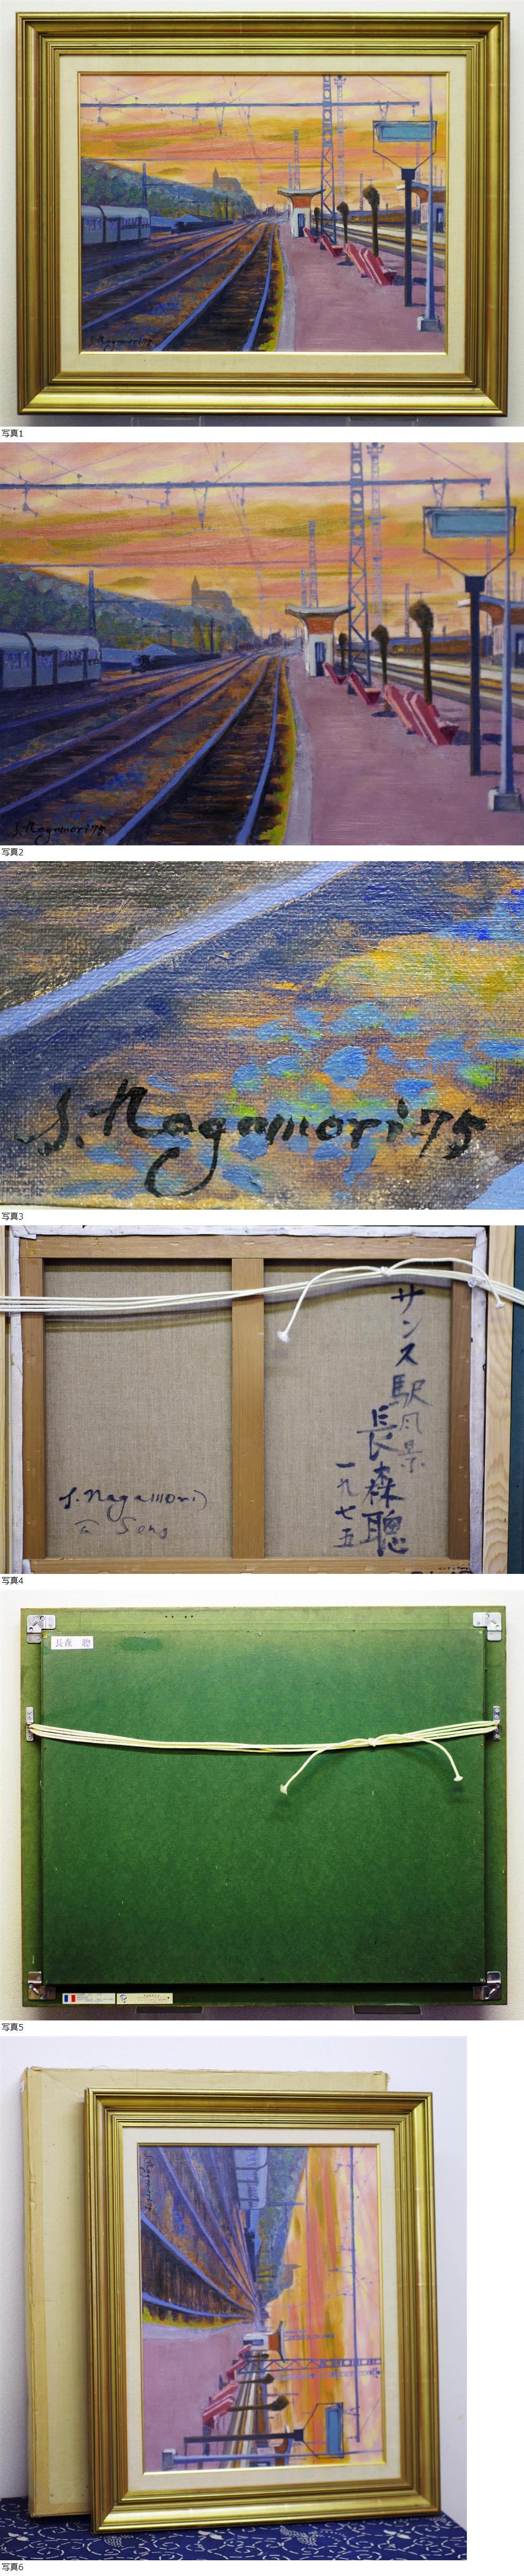 S. Nagamori 75
写真1
S. Nagamori 75
写真2
S. Nagamori 75
写真3
サンス駅風景
長森聰
一九七五
S. Nagamori
à Sens
写真4
長森 聰
写真5
S. Nagamori 75
写真6